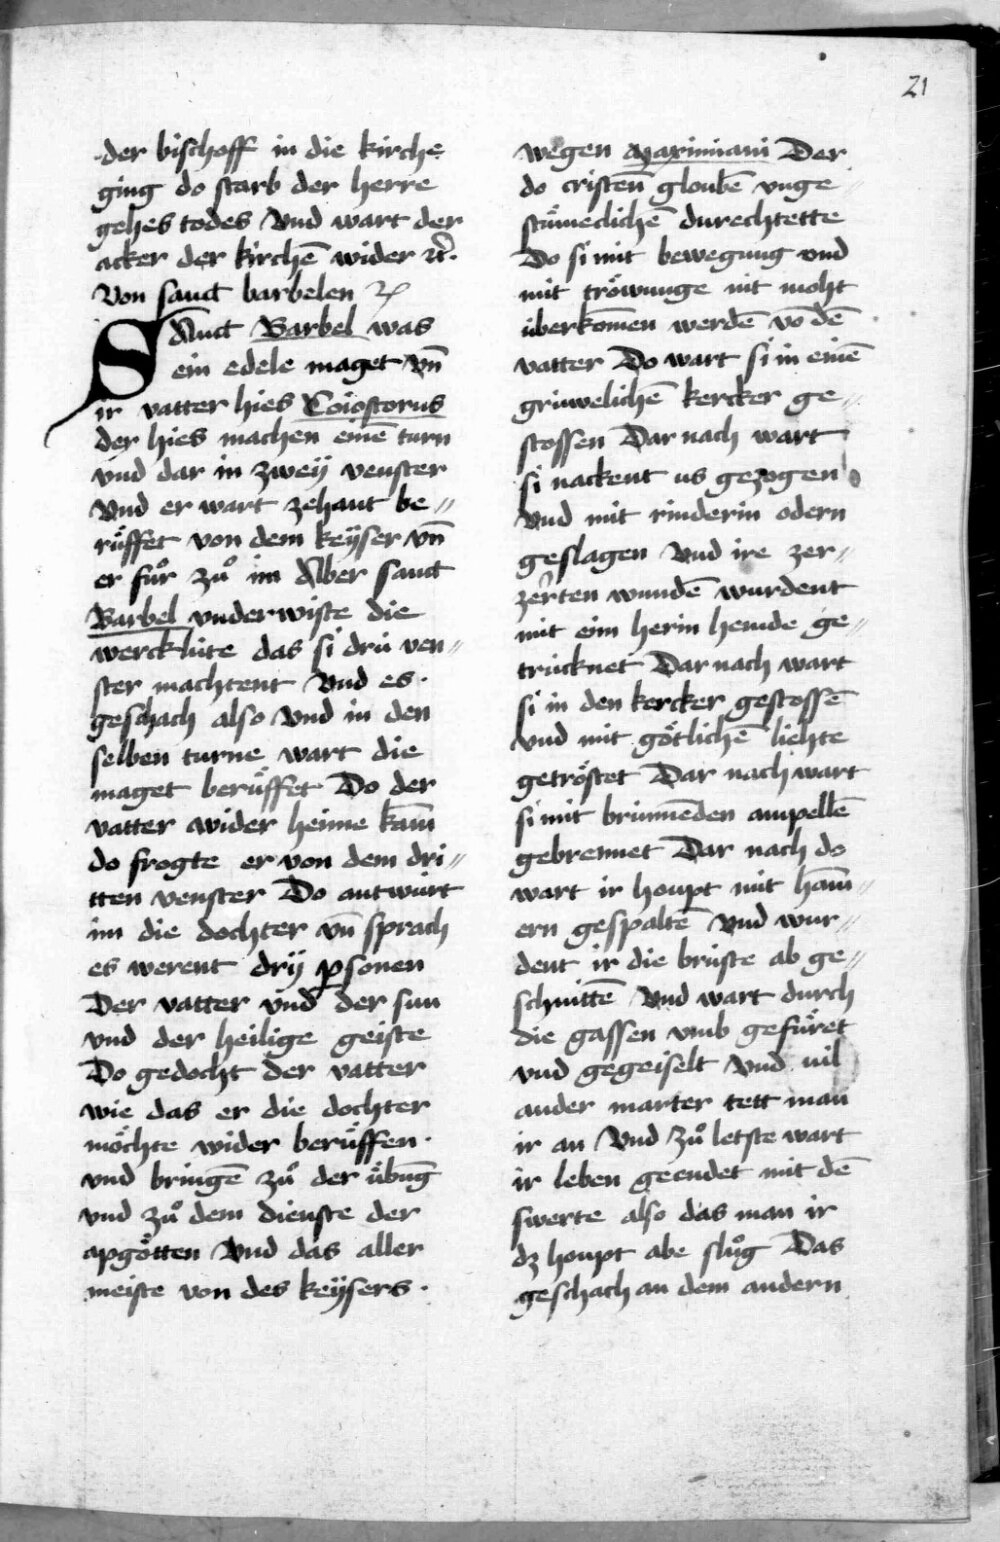 21
der bischoff in die kirche
ging do starb der herre
gehes todes Und wart der
acker der kirchē wider ꝛc̄.
Von sanct barbelen ꝛc
SAnct Barbel was
ein edele maget vn̄
ir vatter hies Coiostorus
der hies machen einē turn
vnd dar in zweÿ venster
Vnd er wart zehant be〃
rüffet von dem keÿser vn̄
er fůr zů im Aber sanct
Barbel vnderwiste die
wercklüte das si drü ven〃
ster machtent Vnd es.
geschach also Vnd in den
selben turne wart die
maget berüffet Do der
vatter wider heime kam̄
do frogte er von dem dri〃
tten venster Do antwürt
im die dochter vn̄ sprach
es werent drÿ ꝑsonen
Der vatter vnd der sun
vnd der heilige geiste
Do gedocht der vatter
wie das er die dochter
möchte wider berüffen.
vnd bringē zů der übūg
vnd zů dem dienste der
apgötten Vnd das aller
meiste von des keÿsers.
wegen Maximiani Der
do cristēn gloubē vnge〃
stümeclichē durechtette
Do si mit bewegung vnd
mit tröwunge nit moht
überkom̄en werdē vō dē
vatter Do wart si in einē
grüwelichē kercker ge〃
stossen Dar nach wart
si nackent us gezogen
Vnd mit rinderin odern
geslagen Vnd ire zer〃
zerten wundē wurdent
mit eim herin hemde ge〃
trücknet Dar nach wart
si in den kercker gestossē
vnd mit götlichē liehte
getröstet Dar nach wart
si mit brinnēden ampellē
gebrennet Dar nach do
wart ir houpt mit ham̄〃
ern gespaltē Vnd wur〃
dent ir die brüste ab ge〃
schnittē Vnd wart durch
die gassen vmb gefüret
vnd gegeiselt Vnd vil
ander marter tett man
ir an Vnd zů letste wart
ir leben geendet mit dē
swerte also das man ir
dz houpt abe slůg Das
geschach an dem andern